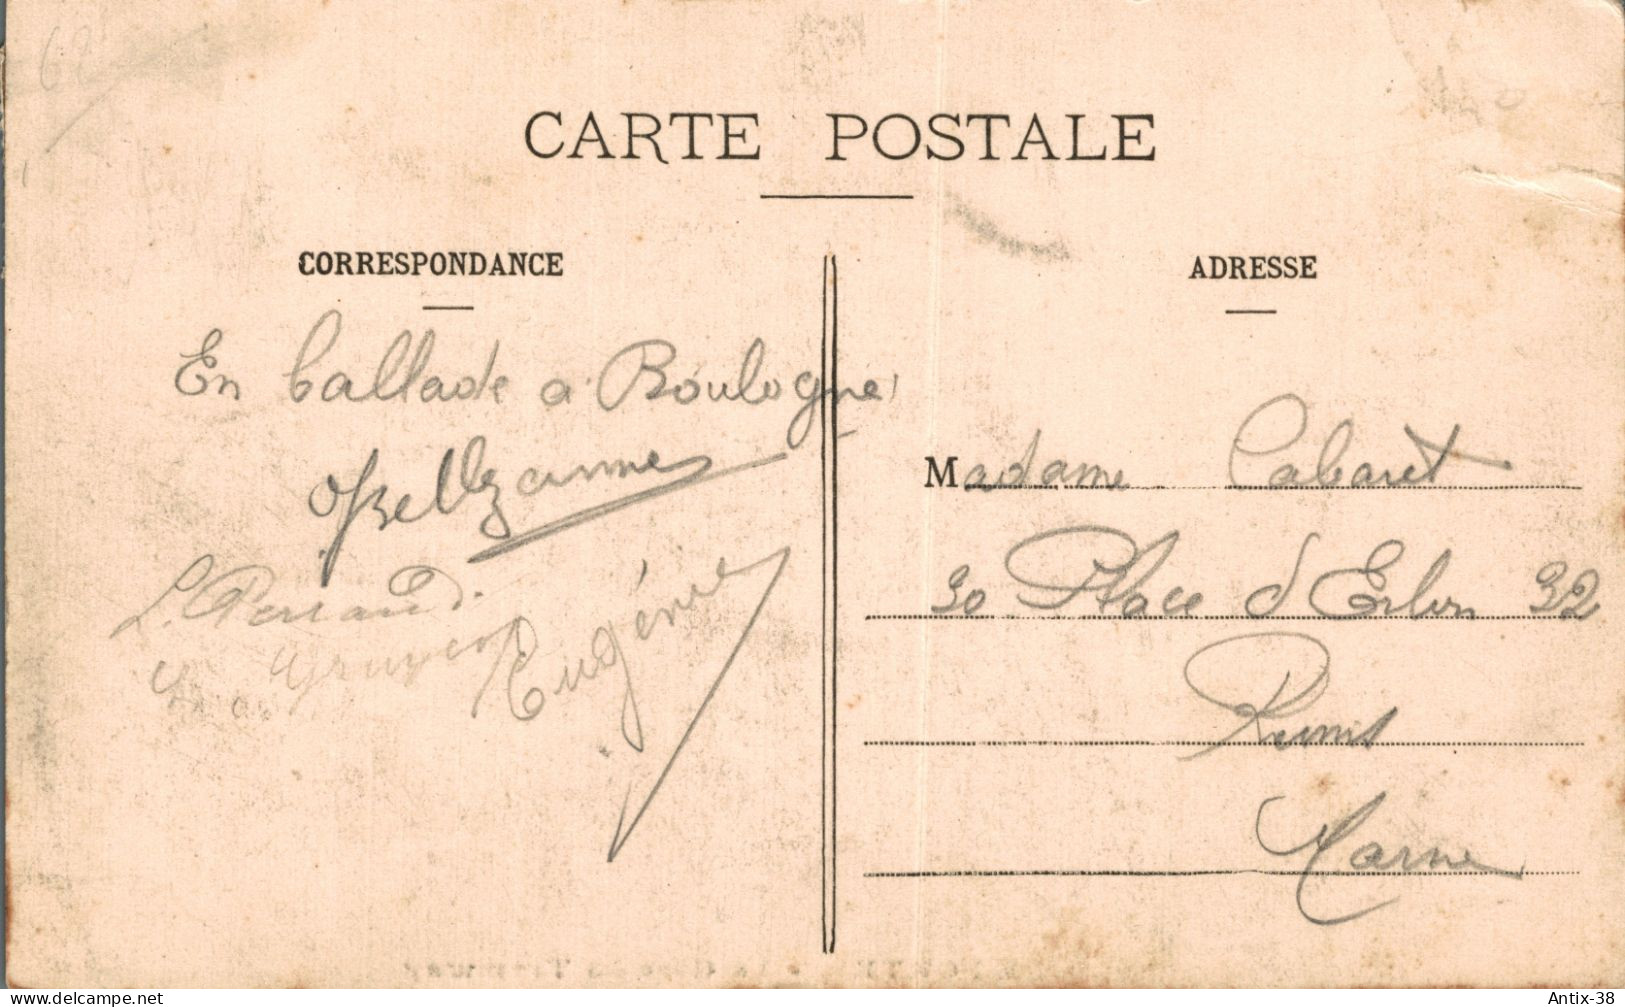 62
CARTE POSTALE
CORRESPONDANCE
En ballade a Boulogne
L. Perraud.
Eugénie
ADRESSE
Madame Cabaret
30 Place d'Erlon 32
Reims
Marne
https://www.delcampe.net
Antix-38